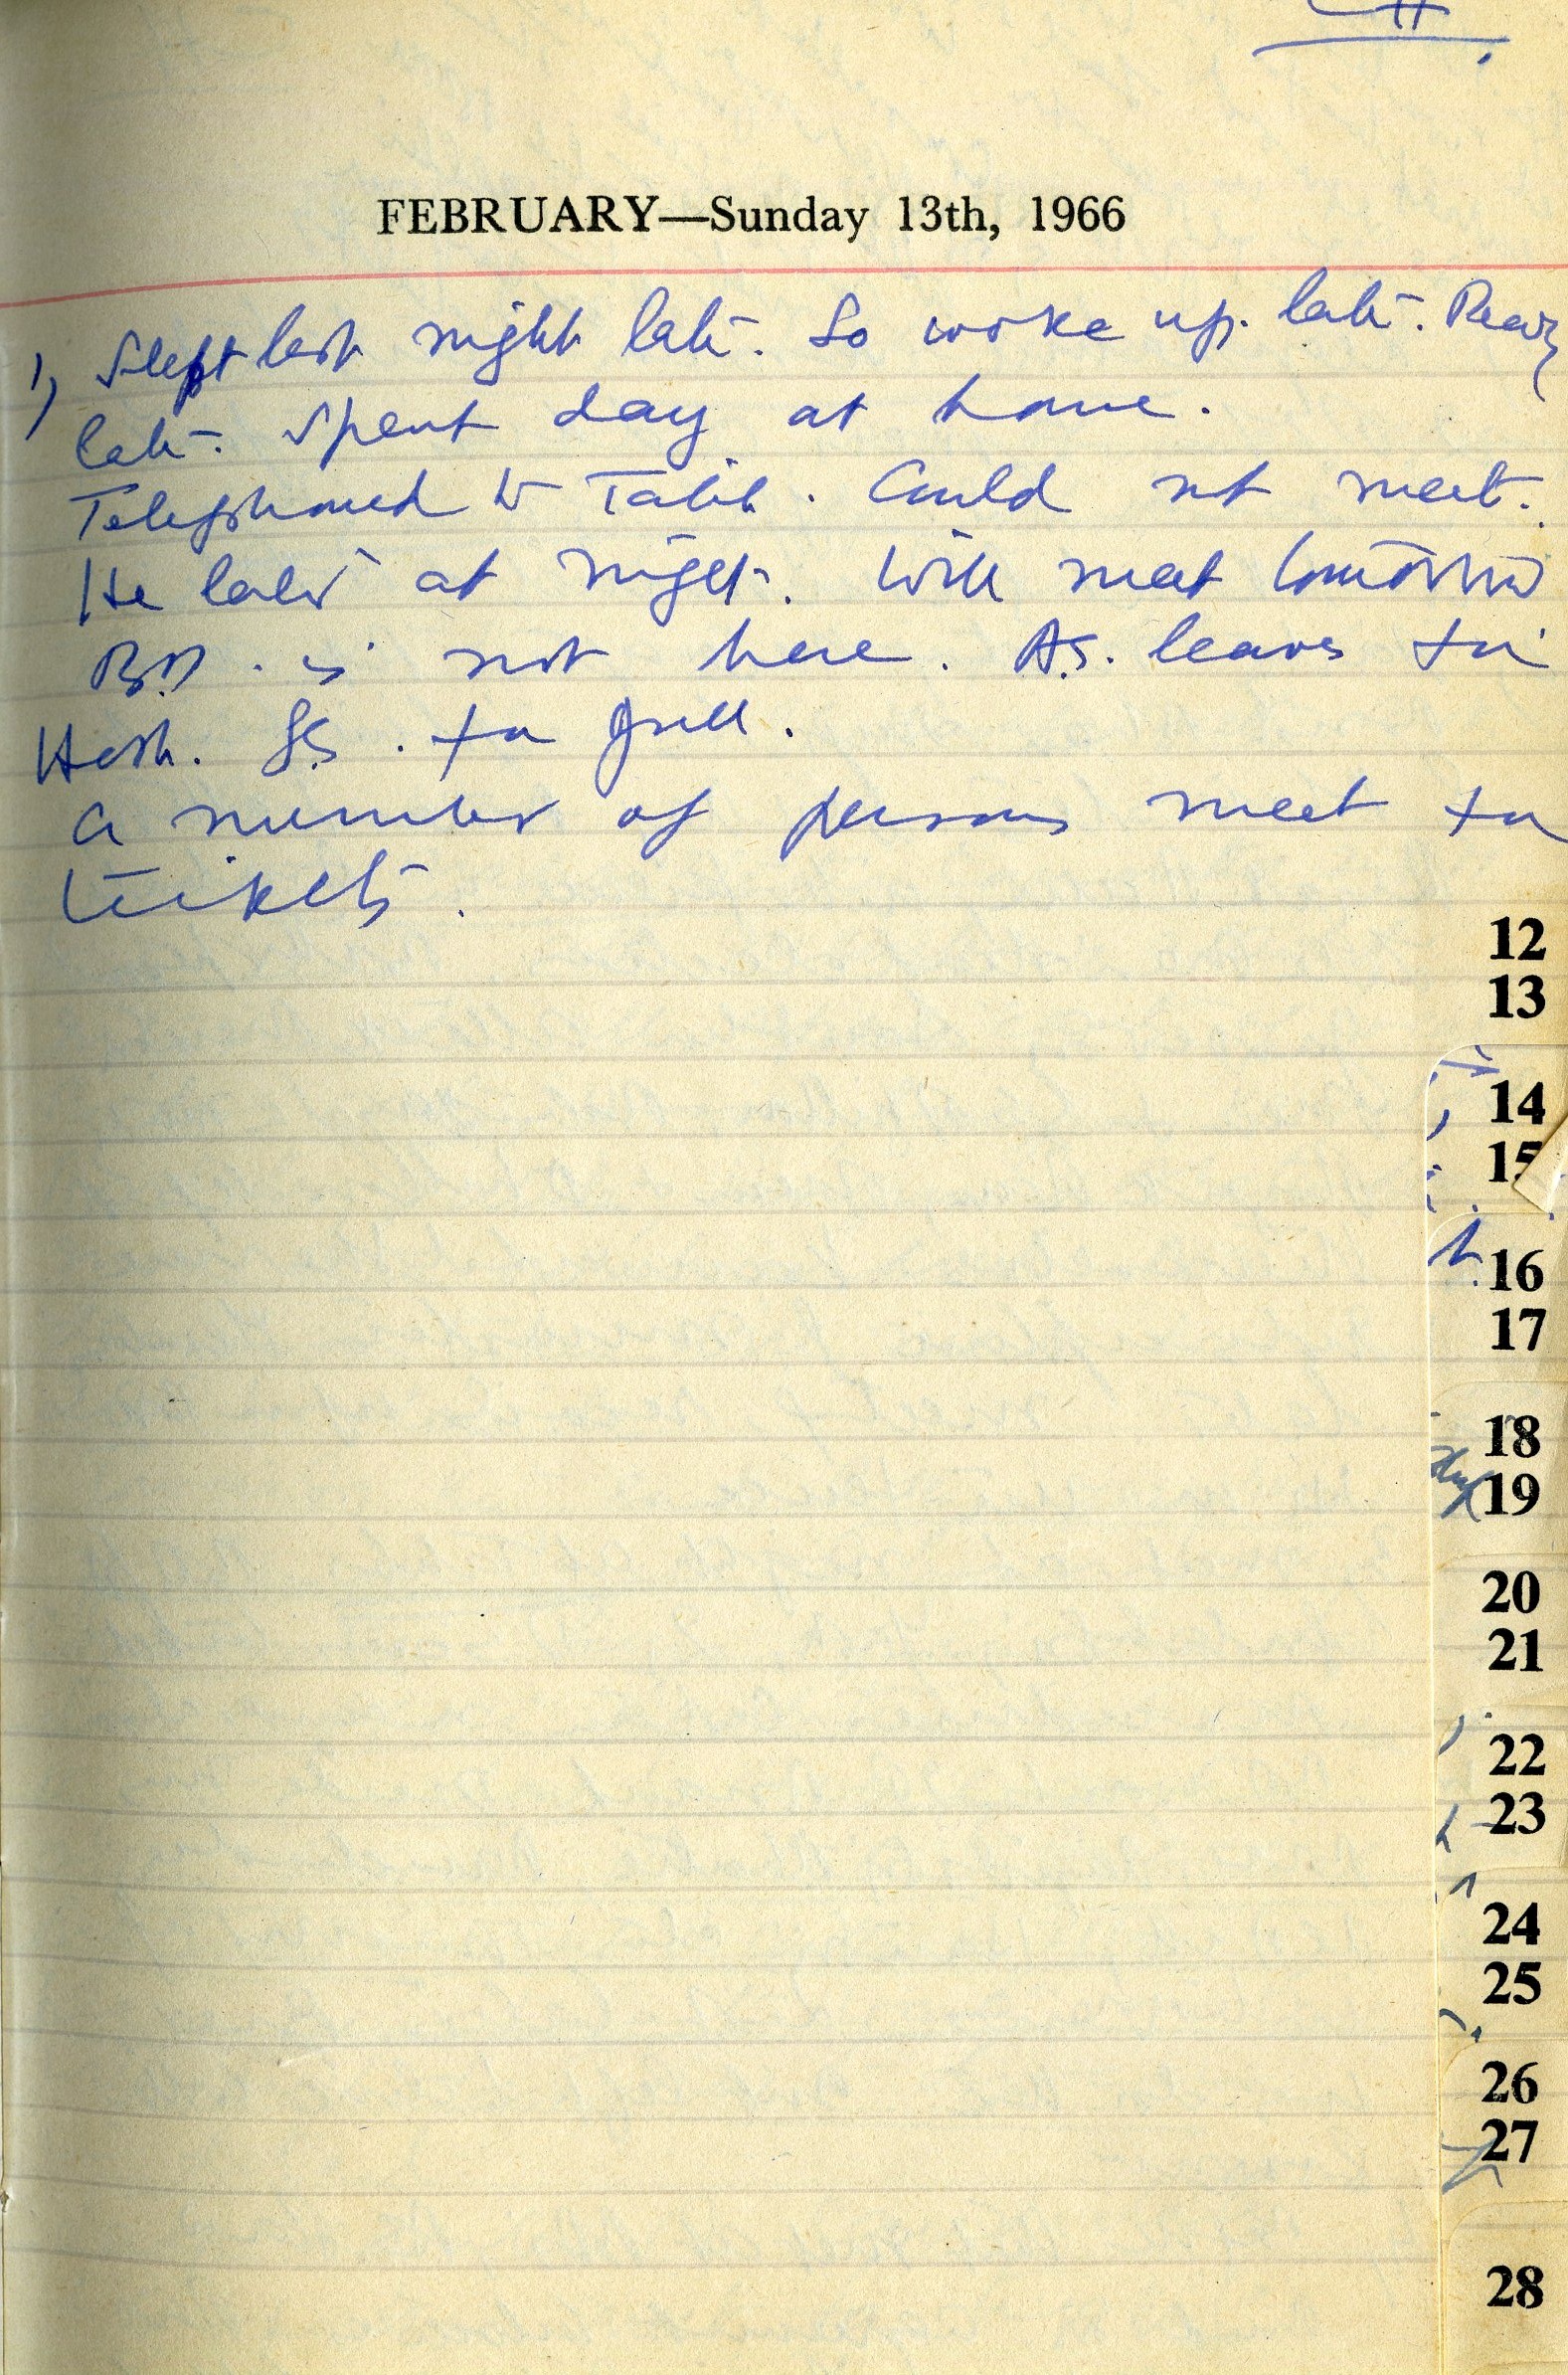 FEBRUARY—Sunday 13th, 1966
1) Slept last night late. So woke up late. Ready
late. Spent day at home.
Telephoned to Talib. Could not meet.
He late at night. Will meet tomorrow
is not here. A.S. leaves for
Hosh. G.S. for Jull.
a number of persons meet for
tickets.
12
13
14
15
16
17
18
19
20
21
22
23
24
25
26
27
28